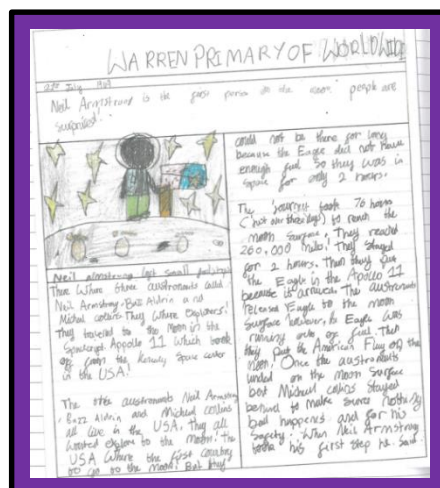 WARREN PRIMARY OF WORLDWIDE
21st July 1969
Neil Armstrong is the first person on the moon people are
surprised!
Neil Armstrong last small
There Where three austronauts called
Neil Armstrong, Buzz Aldrin and
Michael collins. They Where Explorers!
They traveled to the Moon in the
Spacecraft Apollo 11 Which took
off from the Kenedy Space center
in the USA!
The three austronauts Neil Armstrong
, Buzz Aldrin and Micheal collins
all live in the USA, they all
wanted explore to the moon! The
USA Where the first country
to go to the moon! But they
could not be there for long
because the Eagle did not have
enough fuel So they was in
space for only 2 hours.
The journey took 76 hours
(just over three days) to reach the
moon surface. They reached
260,000 miles! They stayed
for 2 hours. Then they put
the Eagle in the Apollo 11
because it arrived. The austronauts
released Eagle to the moon
surface however, he Eagle was
running out of fuel. Then
they put the American Flag on the
moon! Once the austronauts
landed on the moon surface
but Michael collins stayed
behind to make sure nothing
bad happens and for his
safety. When Neil Armstrong
his first step he said